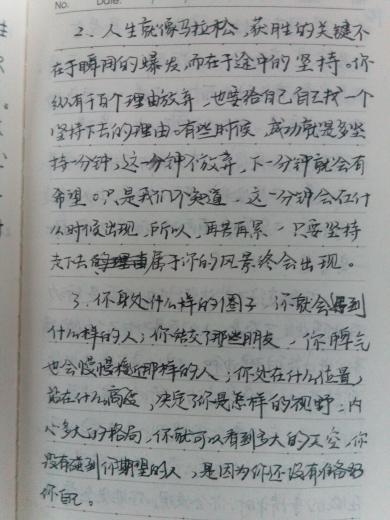 No.  Date.
2、人生就像马拉松，获胜的关键不
在于瞬间的爆发，而在于途中的坚持。你
纵有千百个理由放弃，也要给自己找一个
坚持下去的理由。有些时候，成功就是多坚
持一分钟，这一分钟不放弃，下一分钟就会有
希望。只是我们不知道，这一分钟会在什
么时候出现，所以，再苦再累，只要坚持
走下去，属于你的风景终会出现。
3、你身处什么样的圈子，你就会遇到
什么样的人；你结交了哪些朋友，你脾气
也会慢慢接近那样的人；你处在什么位置，
站在什么高度，决定了你是怎样的视野；内
心多大的格局，你就可以看到多大的天空，你
没有碰到你期望的人，是因为你还没有修好
你自己。